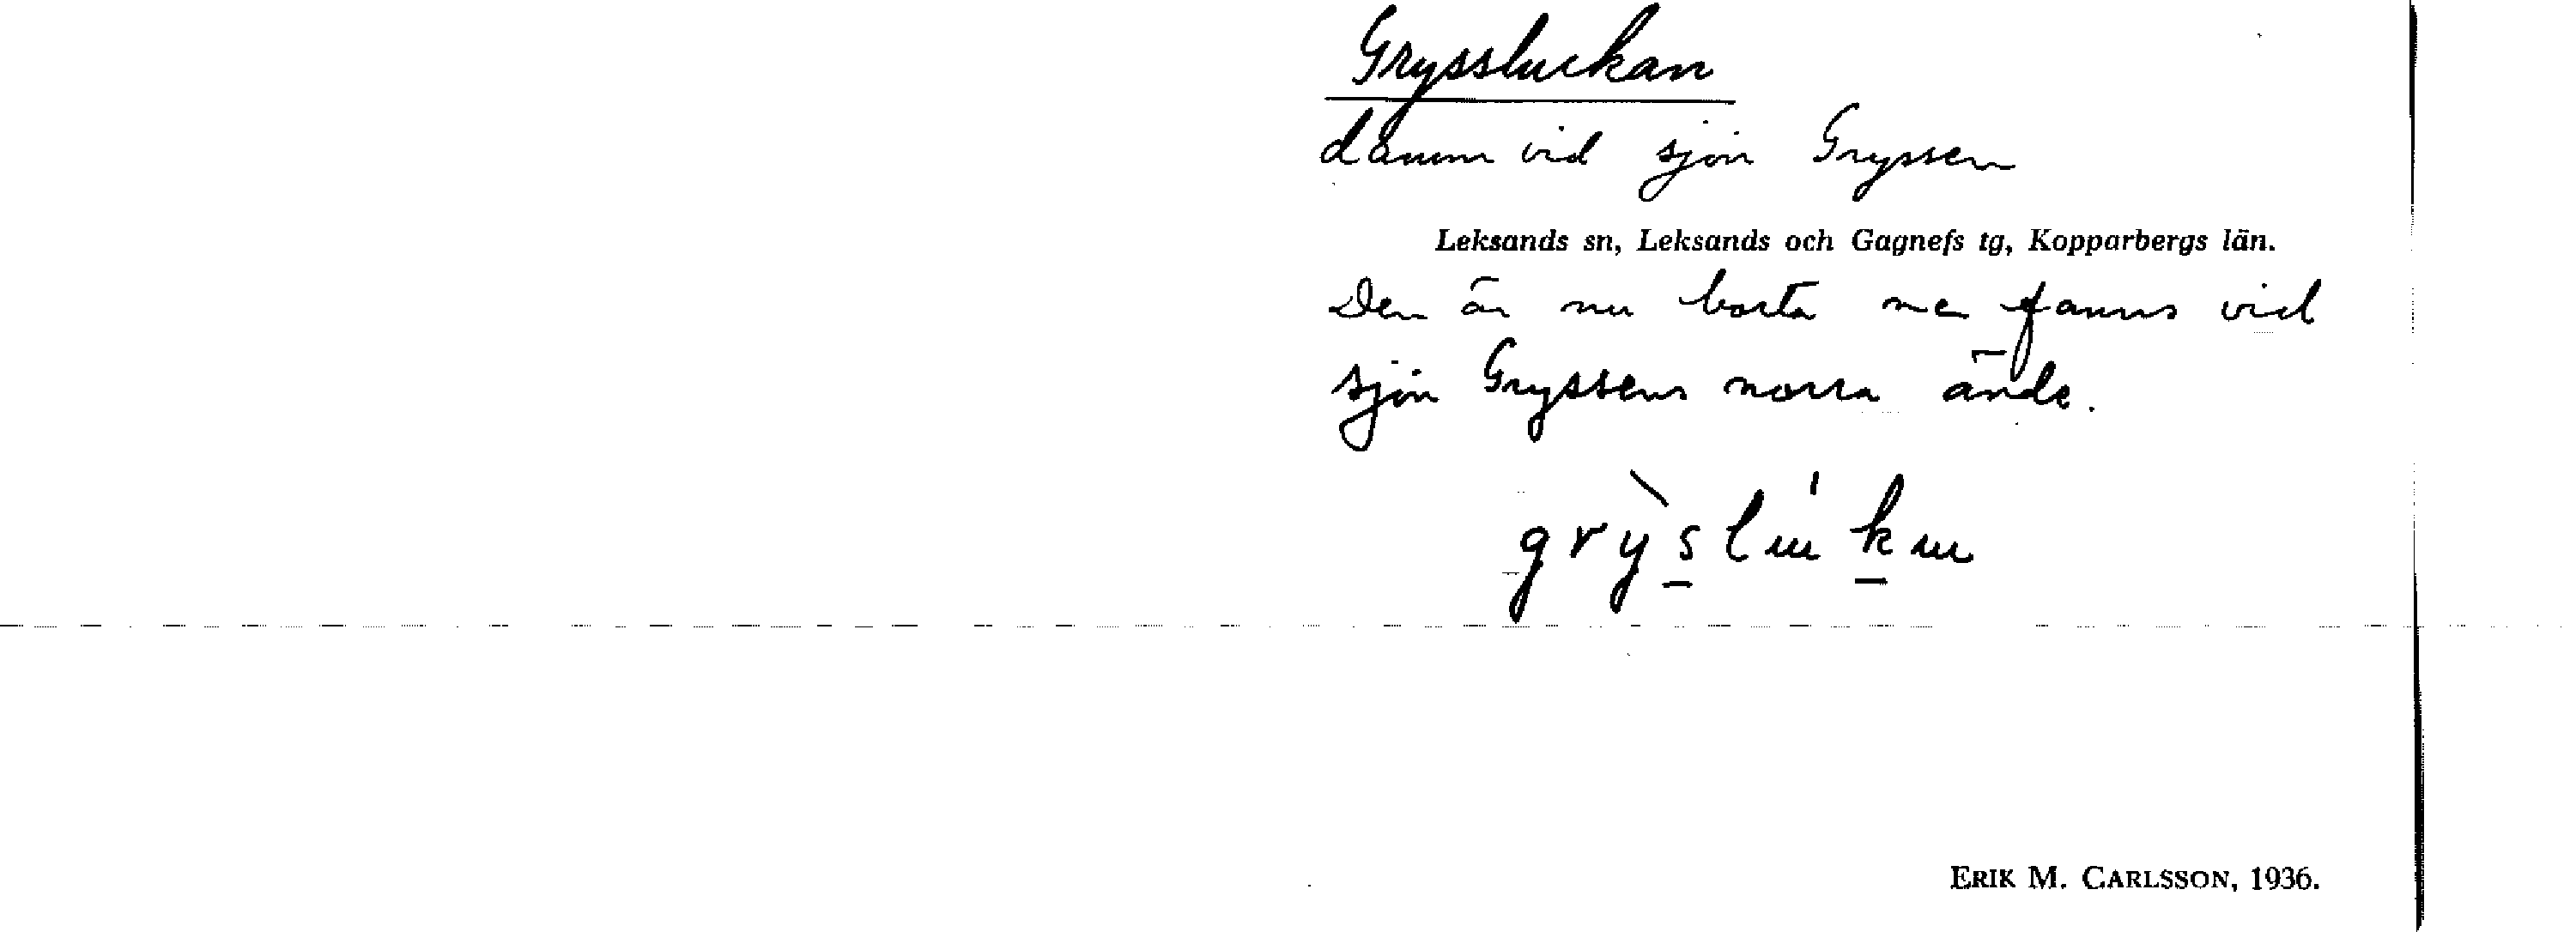 Gryssluckan
damm vid sjön Gryssen
Leksands sn, Leksands och Gagnefs tg, Kopparbergs län.
Den är nu borta men fanns vid
sjön Gryssens norra ände.
ERIK M. CARLSSON, 1936.